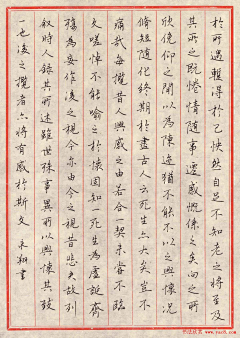 於所遇暫得於己怏然自足不知老之将至及
其所之既惓情隨事遷感慨係之矣向之所
欣俛仰之間以為陳迹猶不能不以之興懷况
脩短隨化終期於盡古人云死生亦大矣豈不
痛哉每攬昔人興感之由若合一契未嘗不臨
文嗟悼不能喻之於懷固知死生為虛誕齊
殤為妄作後之視今亦由今之視昔悲夫故列
叙時人錄其所述雖世殊事異所以興懷其致
一也後之攬者亦將有感於斯文 書